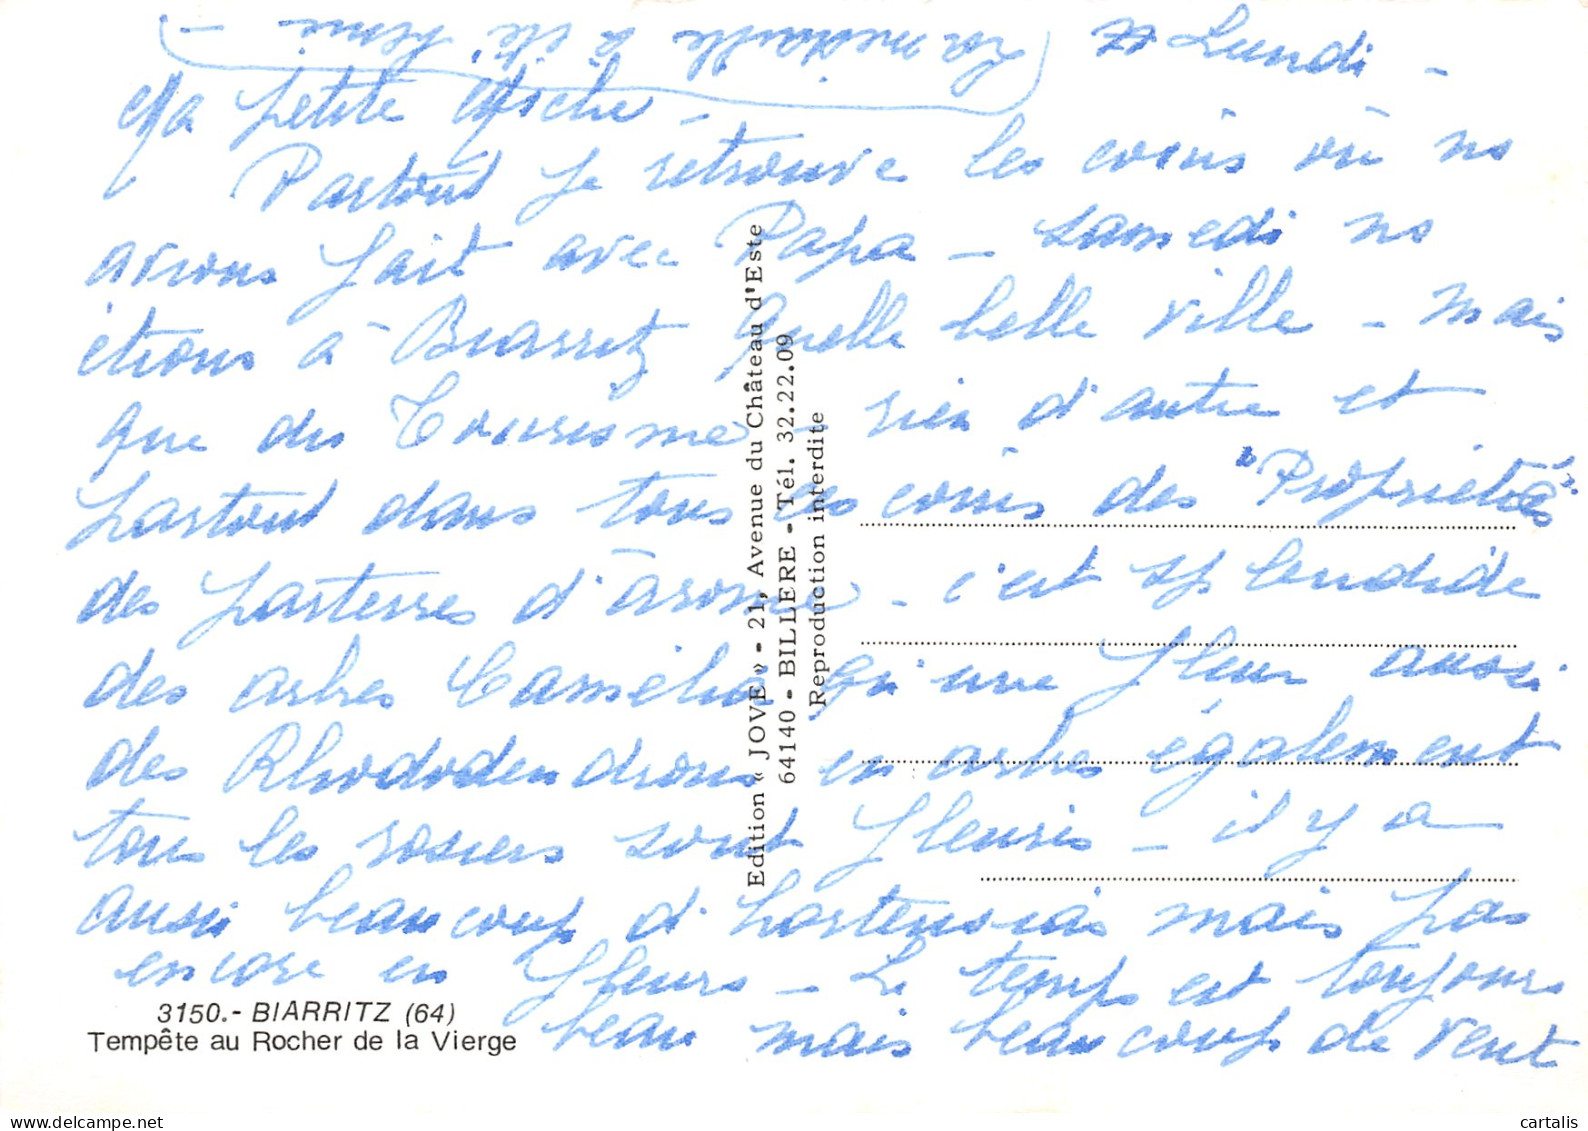 Lundi -
La médaille à été bénie -
Ma petite
Partout je retrouve les coins où ns
avions fait avec Papa - Samedi ns
étions à Biarritz quelle belle ville - Mais
que du Tourisme - rien d'autre et
partout dans tous les coins des "Propriétés"
des parterres d'arome - c'est splendide
des arbres Camélia qu'une fleur aussi
des Rhododendrons en arbres également
tous les rosiers sont fleuris - il y a
aussi beaucoup d'hortensias mais pas
encore en fleurs - Le temps est toujours
beau mais beaucoup de vent
3150.- BIARRITZ (64)
Tempête au Rocher de la Vierge
Edition « JOVE » - 21, Avenue du Château d'Este
64140 - BILLERE - Tél. 32.22.09
Reproduction interdite
cartalis